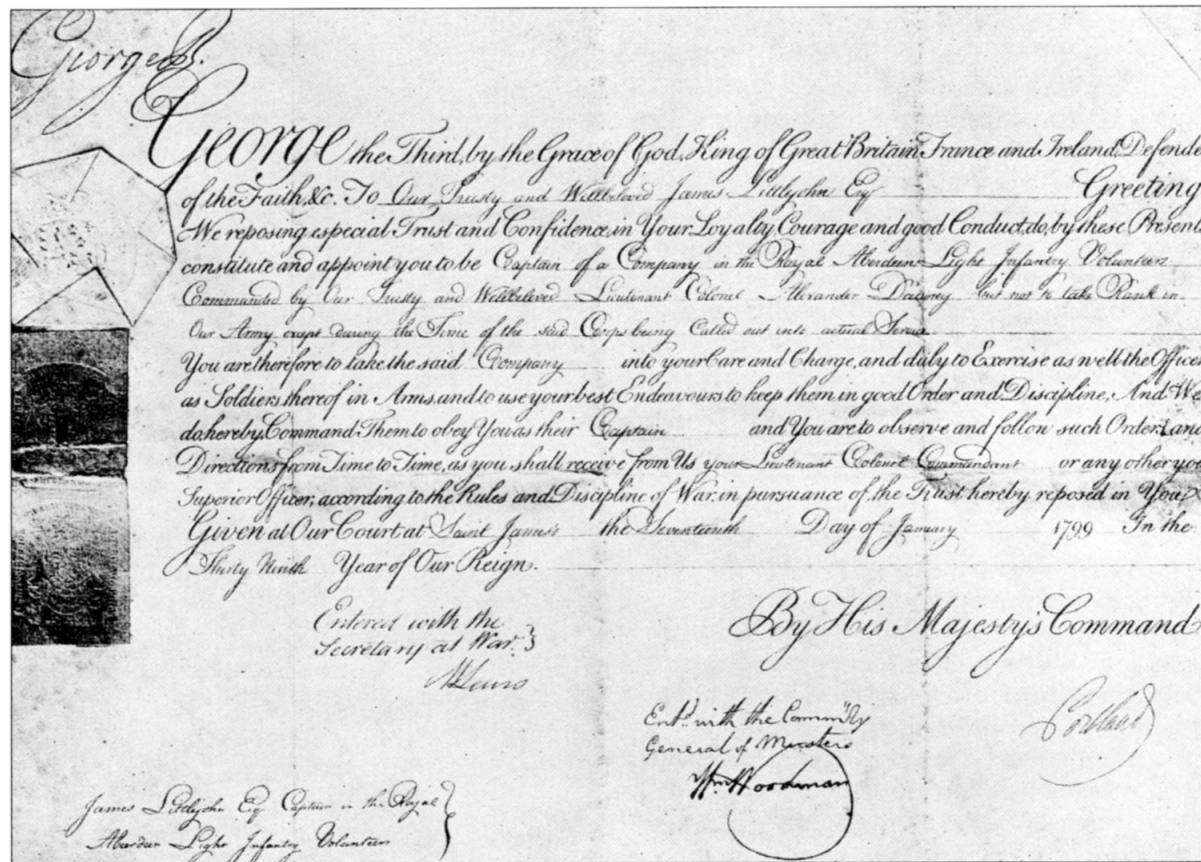 George R.
George the Third, by the Grace of God, King of Great Britain France and Ireland, Defende
of the Faith, &c. To Our Trusty and Wellbeloved James Littlejohn Esq Greeting
We reposing especial Trust and Confidence in Your Loyalty, Courage and good Conduct, do, by these Presents
constitute and appoint you to be Captain of a Company in the Royal Aberdeen Light Infantry Volunteers
Commanded by Our Trusty and Wellbeloved Lieutenant Colonel Alexander but not to take Rank in
Our Army except during the Time of the said Corps being Called out into actual Service
You are therefore to take the said Company into your Care and Charge, and duly to Exercise as well the Office
as Soldiers thereof in Arms, and to use your best Endeavours to keep them in good Order and Discipline, And We
do hereby Command Them to obey You as their Captain and You are to observe and follow such Orders and
Directions from Time to Time, as you shall receive from Us your Lieutenant Colonel Commandant or any other you
Superior Officer, according to the Rules and Discipline of War, in pursuance of the Trust hereby reposed in You
Given at Our Court at Saint James's the Seventeenth Day of January 1799 In the
Thirty Ninth Year of Our Reign.
By His Majesty's Command
Entered with the
Secretary at War
Lewis
Portland
Entd. with the Commry
General of Musters
Wm Woodman
James Littlejohn Esq Captain in the Royal
Aberdeen Light Infantry Volunteers